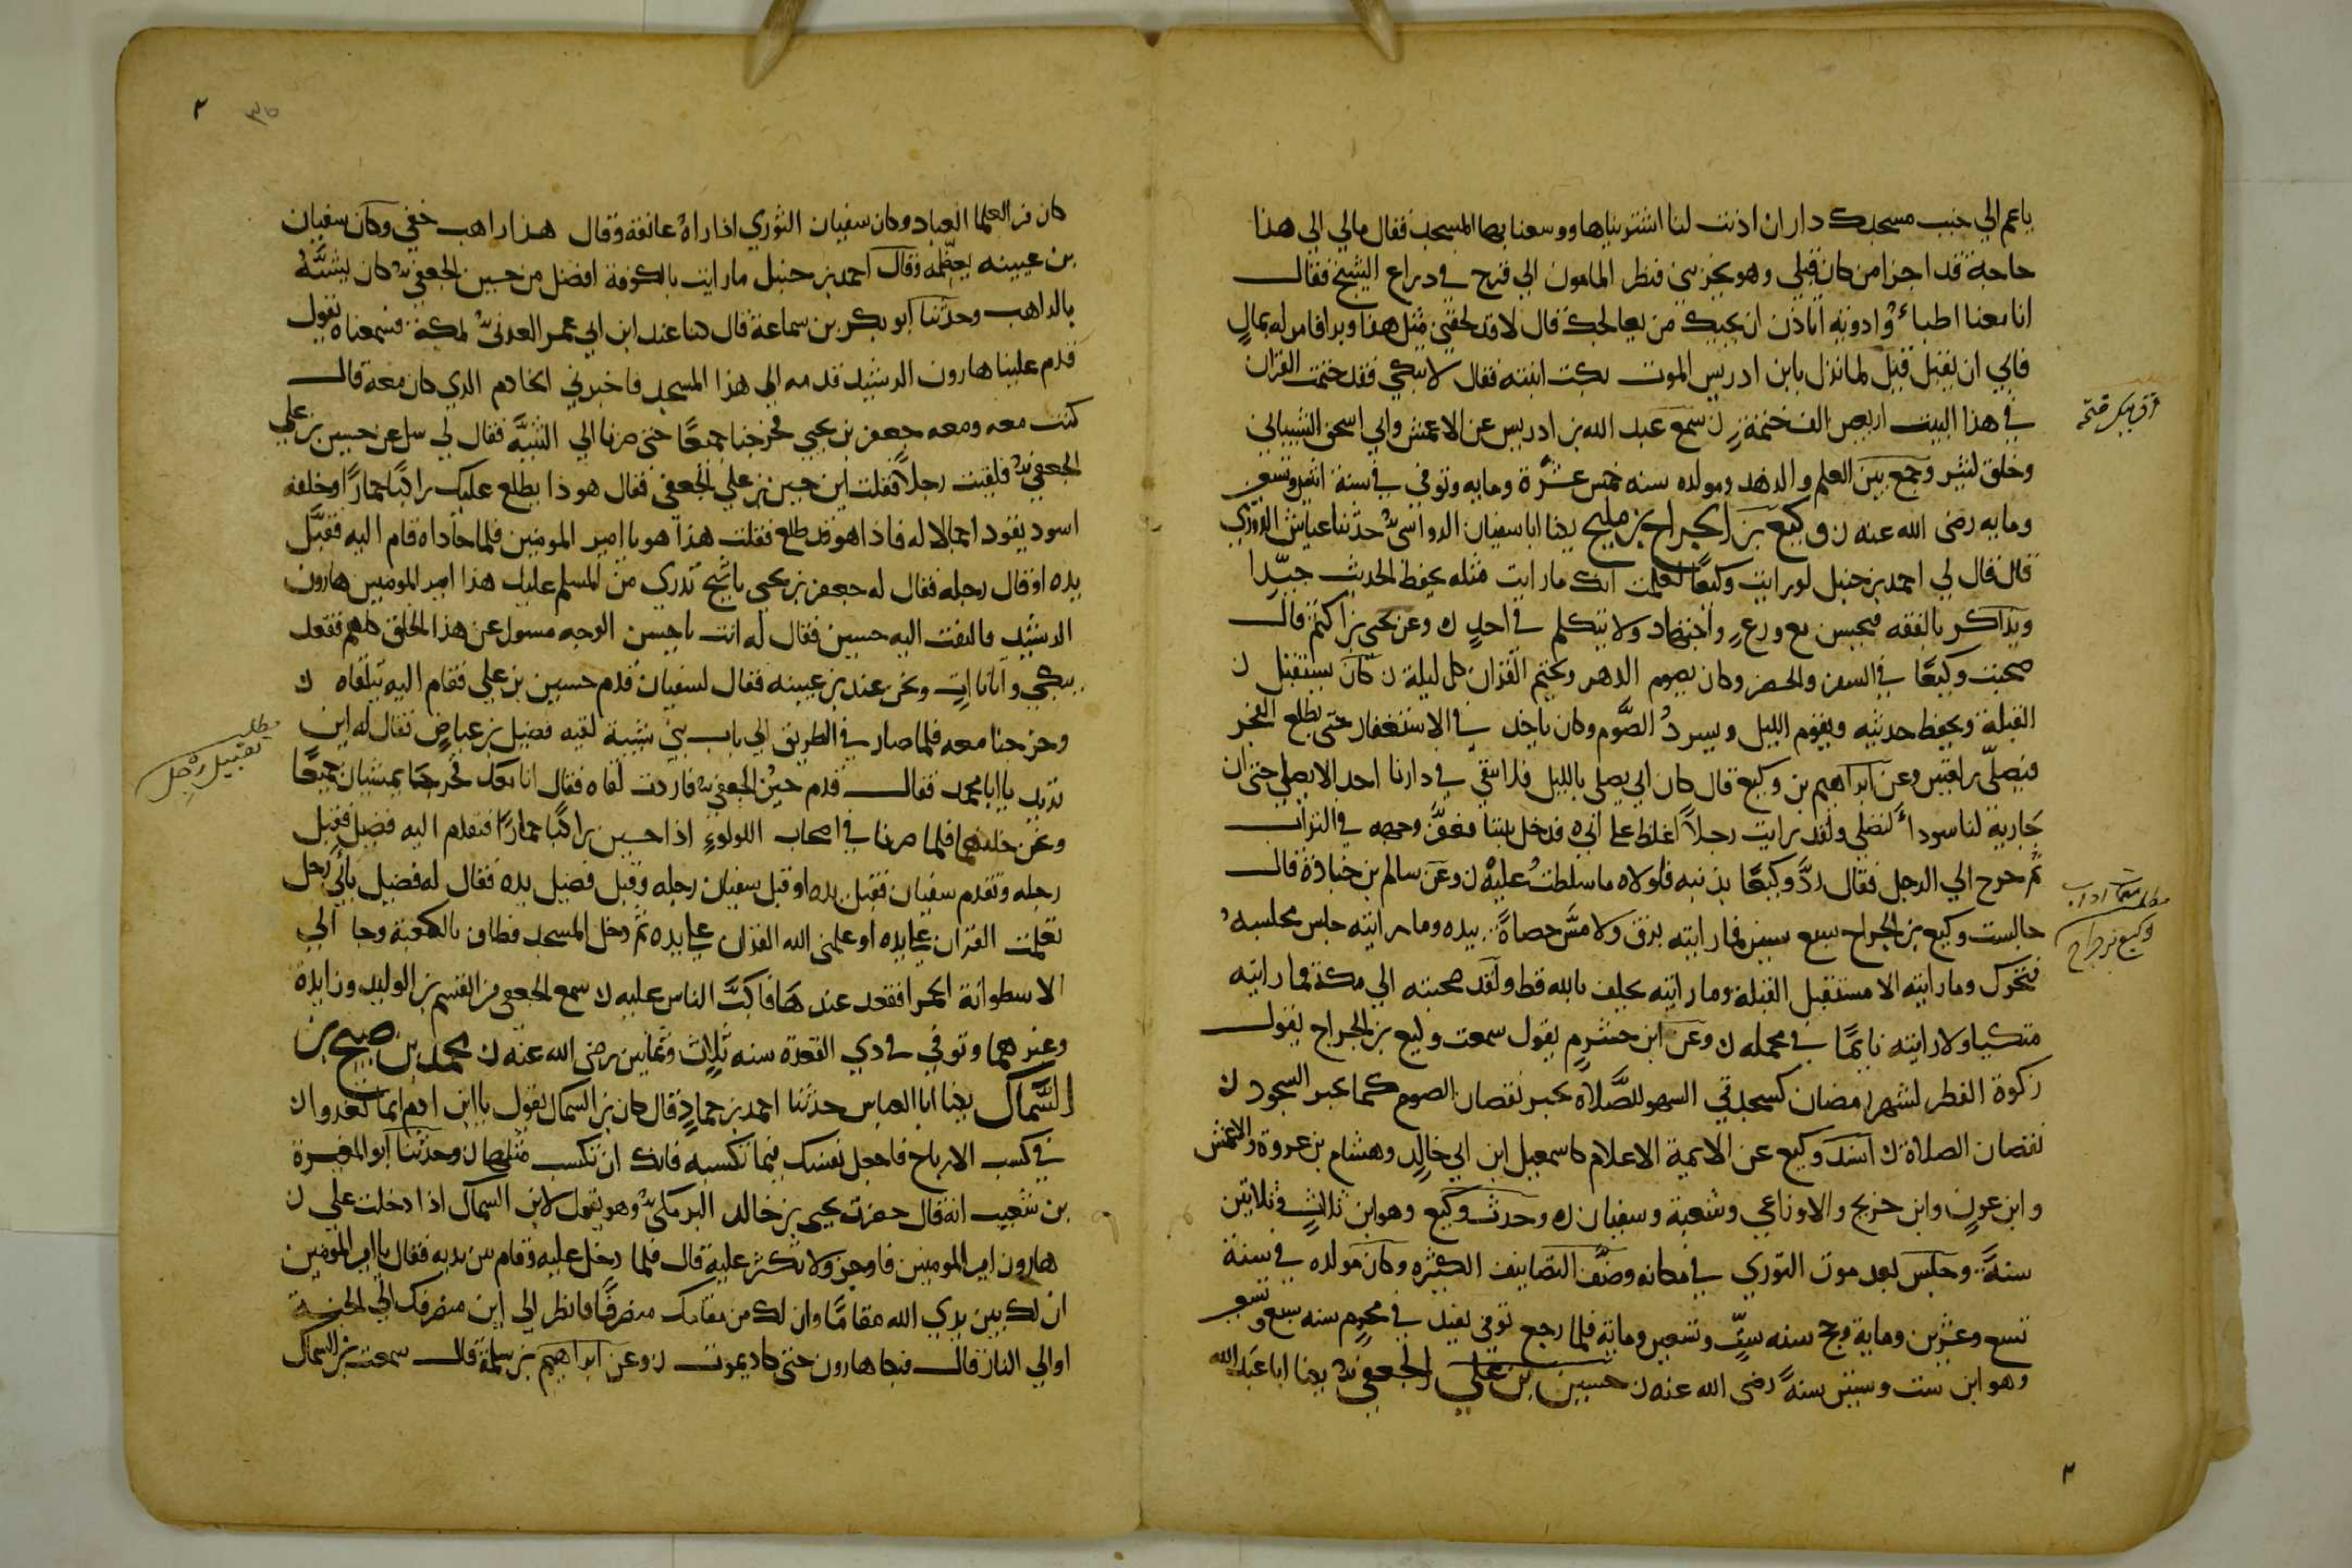 ياعم الي جنب مسجدك دار ان اذنت لنا اشتريناها ووسعنا بها المسجد فقال مالي الي هذا
حاجة قد اجزا من كان قبلي وهو يجزيني فنظر المامون الي قرح في دراع الشيخ فقال
انا معنا اطباء وادوية اتاذن ان يجيك من يعالجك قال لا قد لحقني مثل هذا وبرا فامر له بمال
فابي ان يقبل قيل لما نزل بابن ادريس الموت بكت ابنته فقال لا تبكي فقد ختمت القران
في هذا البيت اربعين الف ختمة ن سمع عبد الله بن ادريس عن الاعمش وابي اسحق الشيباني
وخلق كثير وجمع بين العلم والزهد ومولده سنه خمس عشرة ومايه وتوفي في سنة اثنين وتسعين
ومايه رضى الله عنه ن وكيع بن الجراح بن مليح يكنا ابا سفيان الرواسي حدثنا عباش الدوري
قال قال لي احمد بن حنبل لو رايت وكيعًا لعلمت انك ما رايت مثله يحفظ الحديث جيدا
ويذاكر بالفقه فيحسن مع ورع واجتهاد ولا يتكلم في احد ن وعن يحيي بن اكثم قال
صحبت وكيعًا في السفر والحضر وكان يصوم الدهر ويختم القران كل ليلة ن كان يستقبل ن
القبلة ويحفظ حديثه ويقوم الليل ويسرد الصَّوم وكان ياخذ في الاستغفار حتى يطلع الفجر
فيصلي ركعتين وعن ابراهيم بن وكيع قال كان ابي يصلي بالليل فلا يبقي في دارنا احد الا يصلي حتى ان
جارية لنا سوداء لتصلي ولقد رايت رجلاً اغلظ على ابي فدخل بيتنا فعفَّر وجهه في التراب
ثم خرج الي الرجل فقال زدْ وكيعًا بذنبه فلولاه ما سلطت عليه ن وعن سالم بن جنادة قال
جالست وكيع بن الجراح سبع سنين فما رايته بزق ولا مسَّ حصاةً بيده وما رايته جلس مجلسه
فتحرك وما رايته الا مستقبل القبلة وما رايته يحلف بالله قط ولقد صحبته الي مكة فما رايته
متكيا ولا رايته نايمًا في محمله ن وعن ابن خشرم يقول سمعت وكيع بن الجراح يقول
زكوة الفطر لشهر رمضان كسجدتي السهو للصَّلاة تجبر نقصان الصوم كما تجبر السجود ن
نقصان الصلاة ن اسند وكيع عن الايمة الاعلام كاسمعيل ابن ابي خالد وهشام بن عروة والاعمش
وابن عون وابن جريج والاوزاعي وشعبة وسفيان ن وحدث وكيع وهو ابن ثلاث وثلاثين
سنةً وجلس بعد موت الثوري في مكانه وصنَّف التصانيف الكثيره وكان مولده في سنة
تسع وعشرين وماية وحج سنه ستٍّ وتسعين وماية فلما رجع توفي بفيد في محرم سنه سبع وتسعين
وهو ابن ست وستين سنةً رضى الله عنه ن حسين بن علي الجعفي يكنا ابا عبد الله
مطلب
وكيع بن جراح
٢
٢
٣٥
كان من العلما العباد وكان سفيان الثوري اذا راهُ عانقه وقال هذا راهب جعفي وكان سفيان
بن عيينه يعظّمه وقال احمد بن حنبل ما رايت بالكوفة افضل من حسين الجعفي كان يُشبَّهُ
بالراهب وحدثنا ابو بكر بن سماعة قال كنا عند ابن ابي عمر العدني بمكة فسمعناه يقول
قدم علينا هارون الرشيد قدمه الي هذا المسجد فاخبرني الخادم الذي كان معه قال
كنت معه ومعه جعفر بن يحيي فخرجنا جميعًا حتى صرنا الي الثنيَّه فقال لي سل عن حسين بن علي
الجعفي فلقيت رجلاً فقلت اين حسين بن علي الجعفي فقال هوذا يطلع عليك راكبًا حمارًا وخلفه
اسود يقود اجمالا له فاذا هو قد طلع فقلت هذا هو يا امير المومنين فلما حاذاه قام اليه فقبَّل
يده او قال رجله فقال له جعفر بن يحيي يا شيخ تدري من المسلم عليك هذا امير المومنين هارون
الرشيد فالتفت اليه حسين فقال له انت يا حسن الوجه مسول عن هذا الخلق كلهم فقعد
يبكي واتانا اتٍ ونحن عند بن عيينه فقال لسفيان قدم حسين بن علي فقام اليه يتلقاه ن
وخرجنا معه فلما صار في الطريق الي باب بني شيبة لقيه فضيل بن عياض فقال له اين
تريد يا ابا محمد فقال قدم حسين الجعفي فاردت لقاه فقال انا معك فخرجا يمشيان جميعًا
ونحن خلفهما فلما صرنا في اصحاب اللولوء اذا حسين راكبًا حمارًا فتقدم اليه فضيل فقبل
رجله وتقدم سفيان فقبل يده او قبل سفيان رجله وقبل فضيل يده فقال له فضيل بابي رجل
تعلمت القران على يده او علمني الله القران على يده ثم دخل المسجد فطاف بالكعبة وجا الي
الاسطوانة الحمرا فقعد عندها فاكبَّ الناس عليه ن سمع الجعفي من القسم بن الوليد وزايدة
وغيرهما وتوفي في ذي القعدة سنه ثلاث ومايتين رضى الله عنه ن محمد بن صبيح بن
السَّماك يكنا ابا العباس حدثنا احمد بن حماد قال كان بن السماك يقول يا ابن ادم انما تغدوا ن
في كسب الارباح فاجعل نفسك فيما تكسبه فانك ان تكسب مثلها ن وحدثنا ابو المغيرة
بن شعيب انه قال حضرت يحيي بن خالد البرمكي وهو يقول لابن السماك اذا دخلت على ن
هارون امير المومنين فاوجز ولا تكثر عليه قال فلما دخل عليه وقام بين يديه فقال يا امير المومنين
ان لك بين يدي الله مقامًا وان لك من مقامك منصرفًا فانظر الي اين منصرفك الي الجنة
او الي النار قال فبكا هارون حتى كاد يموت ن وعن ابراهيم بن سلمة قال سمعت بن السماك
مطلب
تقبيل رجل